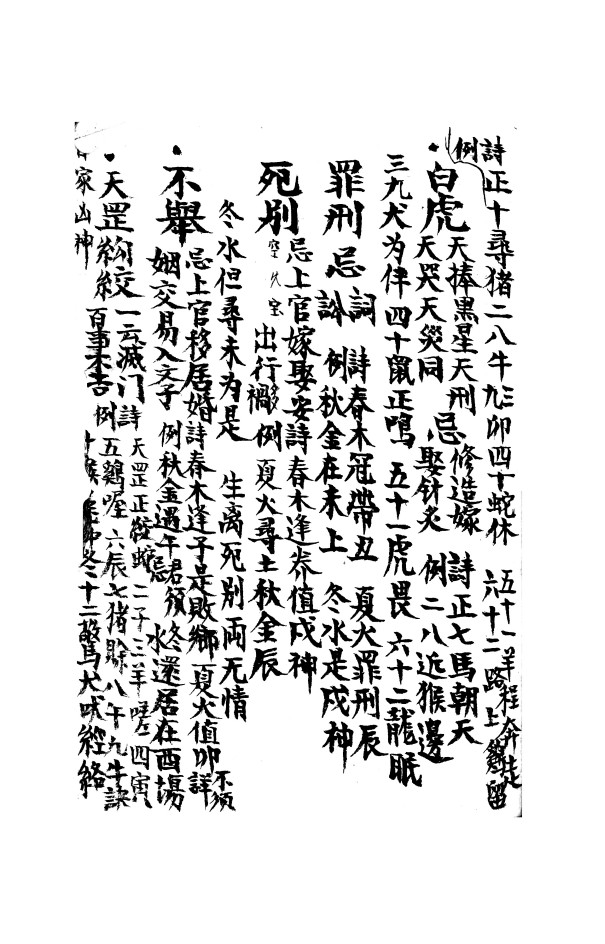 詩例 正十尋猪二八牛 九三卯四十蛇休 五十一羊程奔走 六十二路上鷄留
白虎 天棒黑星天刑 天哭天災同 忌 修造嫁娶針灸 詩例 正七馬朝天 二八近猴邊
三九犬为伴 四十鼠正鳴 五十一虎畏 六十二龍眠
罪刑 忌 詞訟 詩例 春木冠帶丑 夏火罪刑辰 秋金在未上 冬水是戌神
死別 忌上官嫁娶安 出行移 詩例 春木逢养值戌神 夏火尋土秋金辰
冬水但尋未为是 生離死別両无情
不舉 忌上官移居婚姻交易入文字 詩例 春木逢子是敗鄉 夏火值卯 不須詳 秋金遇午 冬水還居在酉場
天罡勾絞 一云滅门 百事不吉 詩例 天罡正絞蛇 二子三羊嗟 四寅五鷄喔 六辰七猪賖 八午九牛訣 冬十二驚犬吠經絡
家凶神